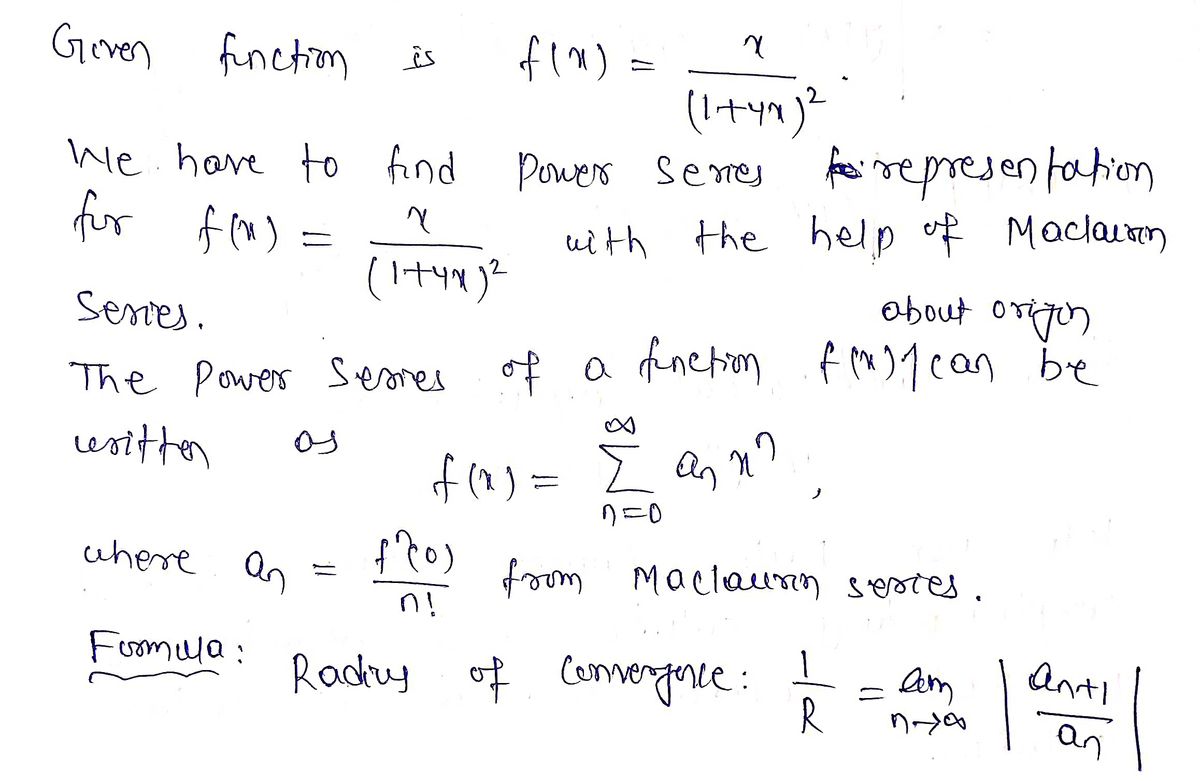 Given function is f(x) = x/(1+4x)².
We have to find Power Series representation
for f(x) = x/(1+4x)² with the help of Maclaurin
Series.
about origin
The Power Series of a function f(x) can be
written as
f(x) = ∞∑n=0 aₙ xⁿ,
where aₙ = fⁿ(0)/n! from Maclaurin series.
Formula: Radius of Convergence: 1/R = lim n→∞ |aₙ₊₁/aₙ|